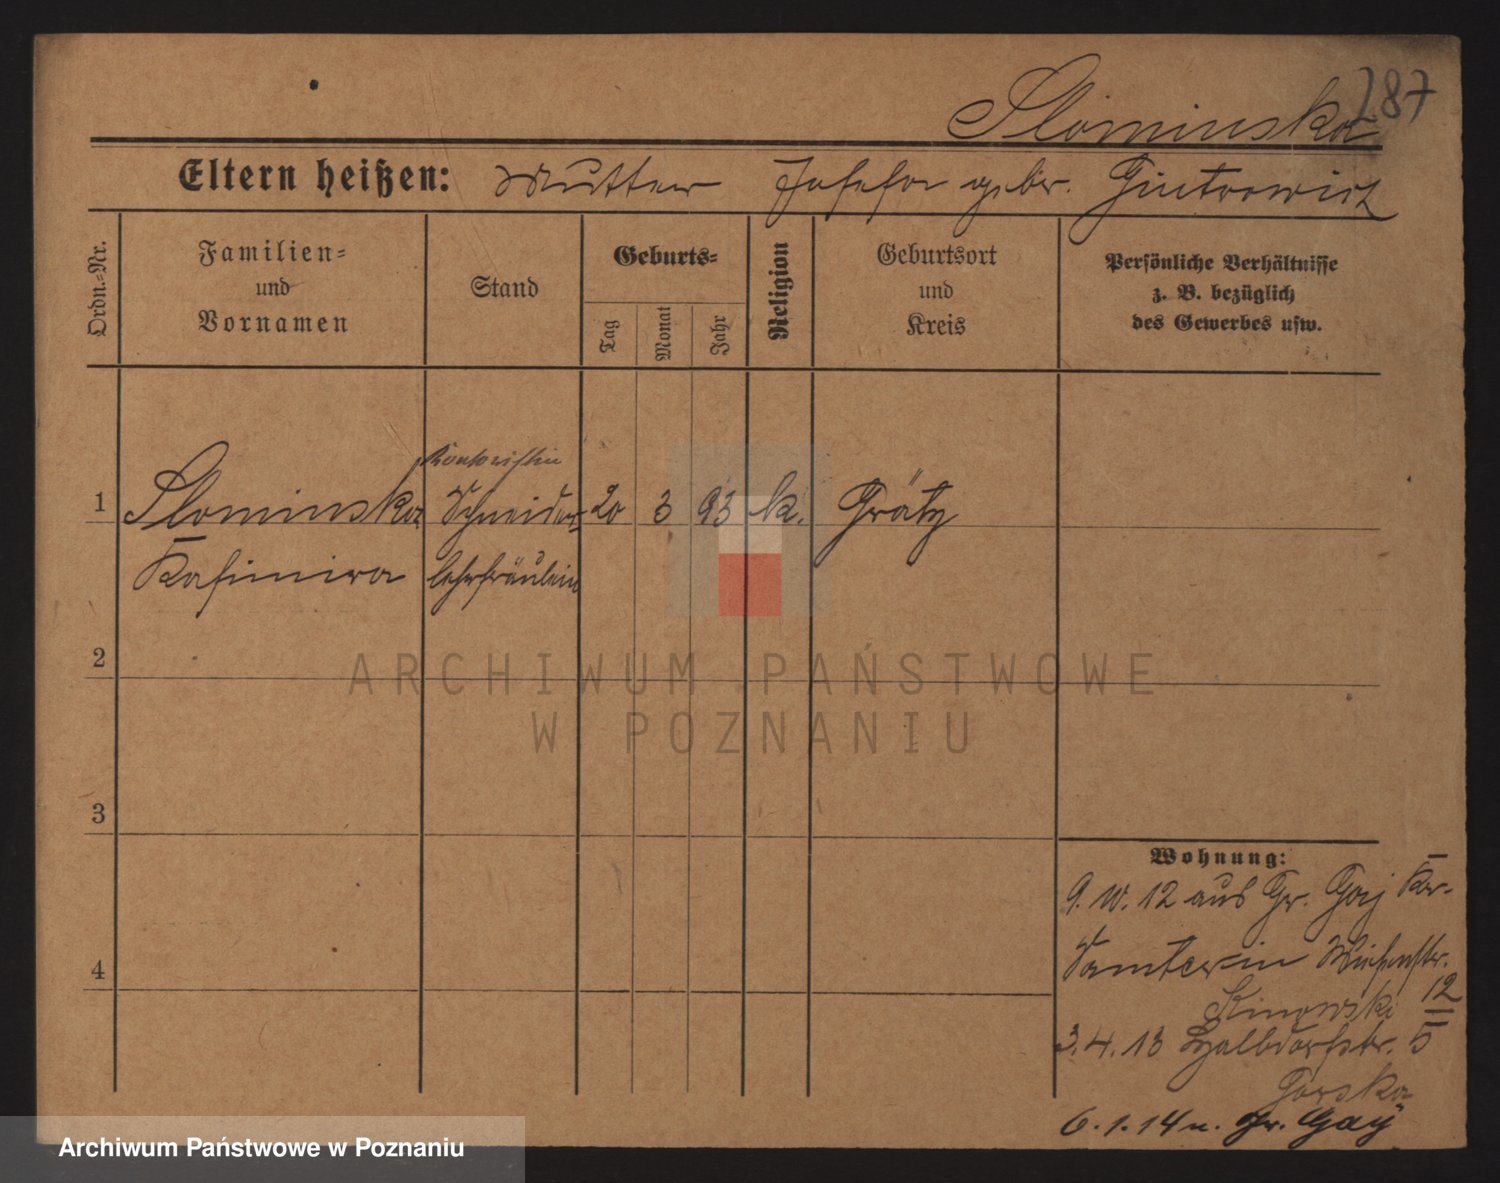 287
Slominska
Eltern heißen: Mutter Josefa gebr. Gintrowicz
Ordn.=Nr.
Familien=
und
Vornamen
Stand
Geburts=
Tag
Monat
Jahr
Religion
Geburtsort
und
Kreis
Persönliche Verhältnisse
z. B. bezüglich
des Gewerbes usw.
Kontoristin
1 Slominska Schneider= 20 3 93 k. Grätz
Kasimira lehrfräulein
2
3
4
Wohnung:
9. 10. 12 aus Gr. Gaj Kr.
Samter in Wiesenstr.
12
3. 4. 13 Halbdorfstr. 5
Gorska
6. 1. 14 n. Gr. Gay
ARCHIWUM PAŃSTWOWE
W POZNANIU
Archiwum Państwowe w Poznaniu